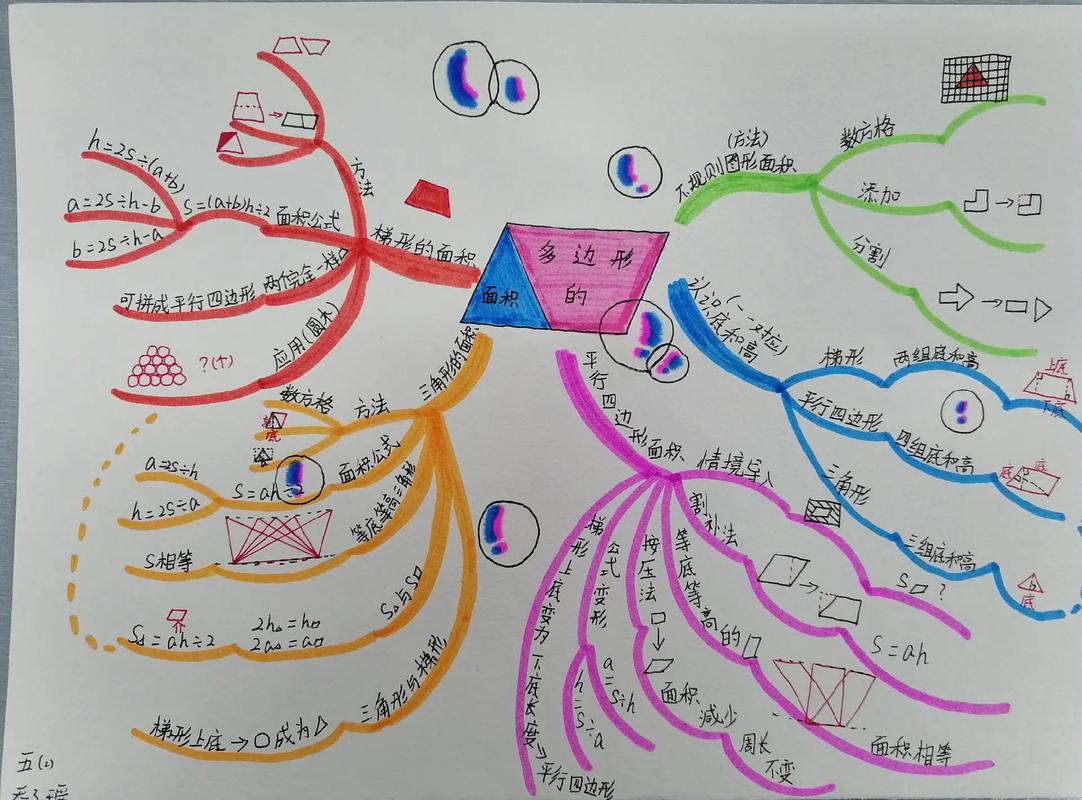 多边形
的
面积
梯形的面积
方法
面积公式
S=(a+b)h÷2
h=2S÷(a+b)
a=2S÷h-b
b=2S÷h-a
两个完全一样
可拼成平行四边形
应用(圆木)
?(个)
三角形的面积
方法
数方格
底
面积公式
S=ah÷2
a=2S÷h
h=2S÷a
等底等高三角形
S相等
S△与S▱
2h△=h▱
2a△=a▱
S△=ah÷2
三角形与梯形
梯形上底→○成为△
平行四边形面积
情境导入
S▱?
割补法
S=ah
等底等高的▱
面积相等
按压法
面积减少
周长不变
公式变形
a=S÷h
h=S÷a
梯形上底变为下底长度
平行四边形
认识(一一对应)
底和高
梯形
两组底和高
上底
下底
平行四边形
四组底和高
底
底
三角形
三组底和高
底
(方法)
不规则图形面积
数方格
添加
分割
五(2)